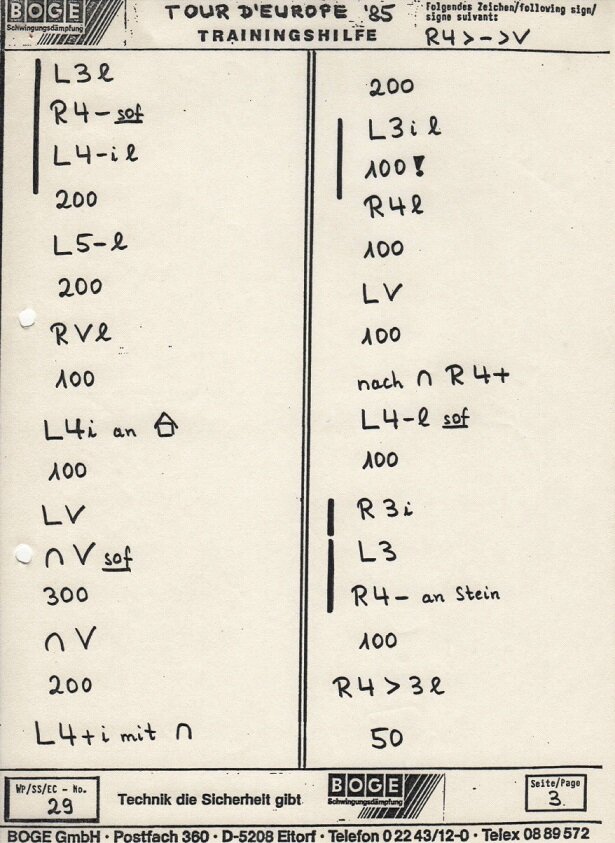 BOGE
Schwingungsdämpfung
TOUR D'EUROPE '85
TRAININGSHILFE
Folgendes Zeichen/following sign/
signe suivant:
R4>->V
L3l
R4- sof
L4-il
200
L5-l
200
RVl
100
L4i an
100
LV
∩ V sof
300
∩ V
200
L4+i mit ∩
200
L3il
100!
R4l
100
LV
100
nach ∩ R4+
L4-l sof
100
R3i
L3
R4- an Stein
100
R4>3l
50
WP/SS/EC - No.
29
Technik die Sicherheit gibt
BOGE
Schwingungsdämpfung
Seite/Page
3.
BOGE GmbH · Postfach 360 · D-5208 Eitorf · Telefon 0 22 43/12-0 · Telex 08 89 572